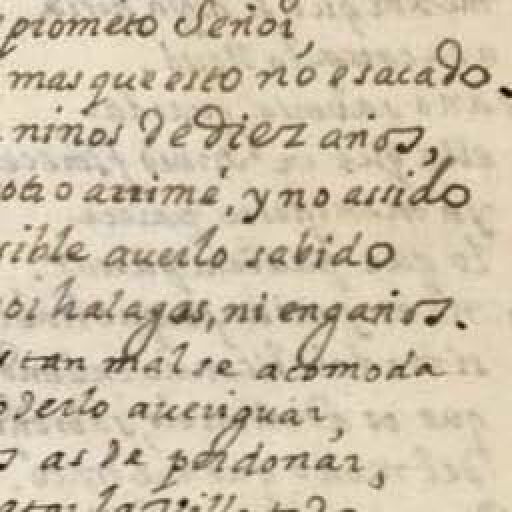 prometo Señor,
mas que esto no e sacado.
niños de diez años,
otro arrimé, y no assido
sible auerlo sabido
halagos, ni engaños.
tan mal se acomoda
oderlo aueriguar,
as de perdonar,